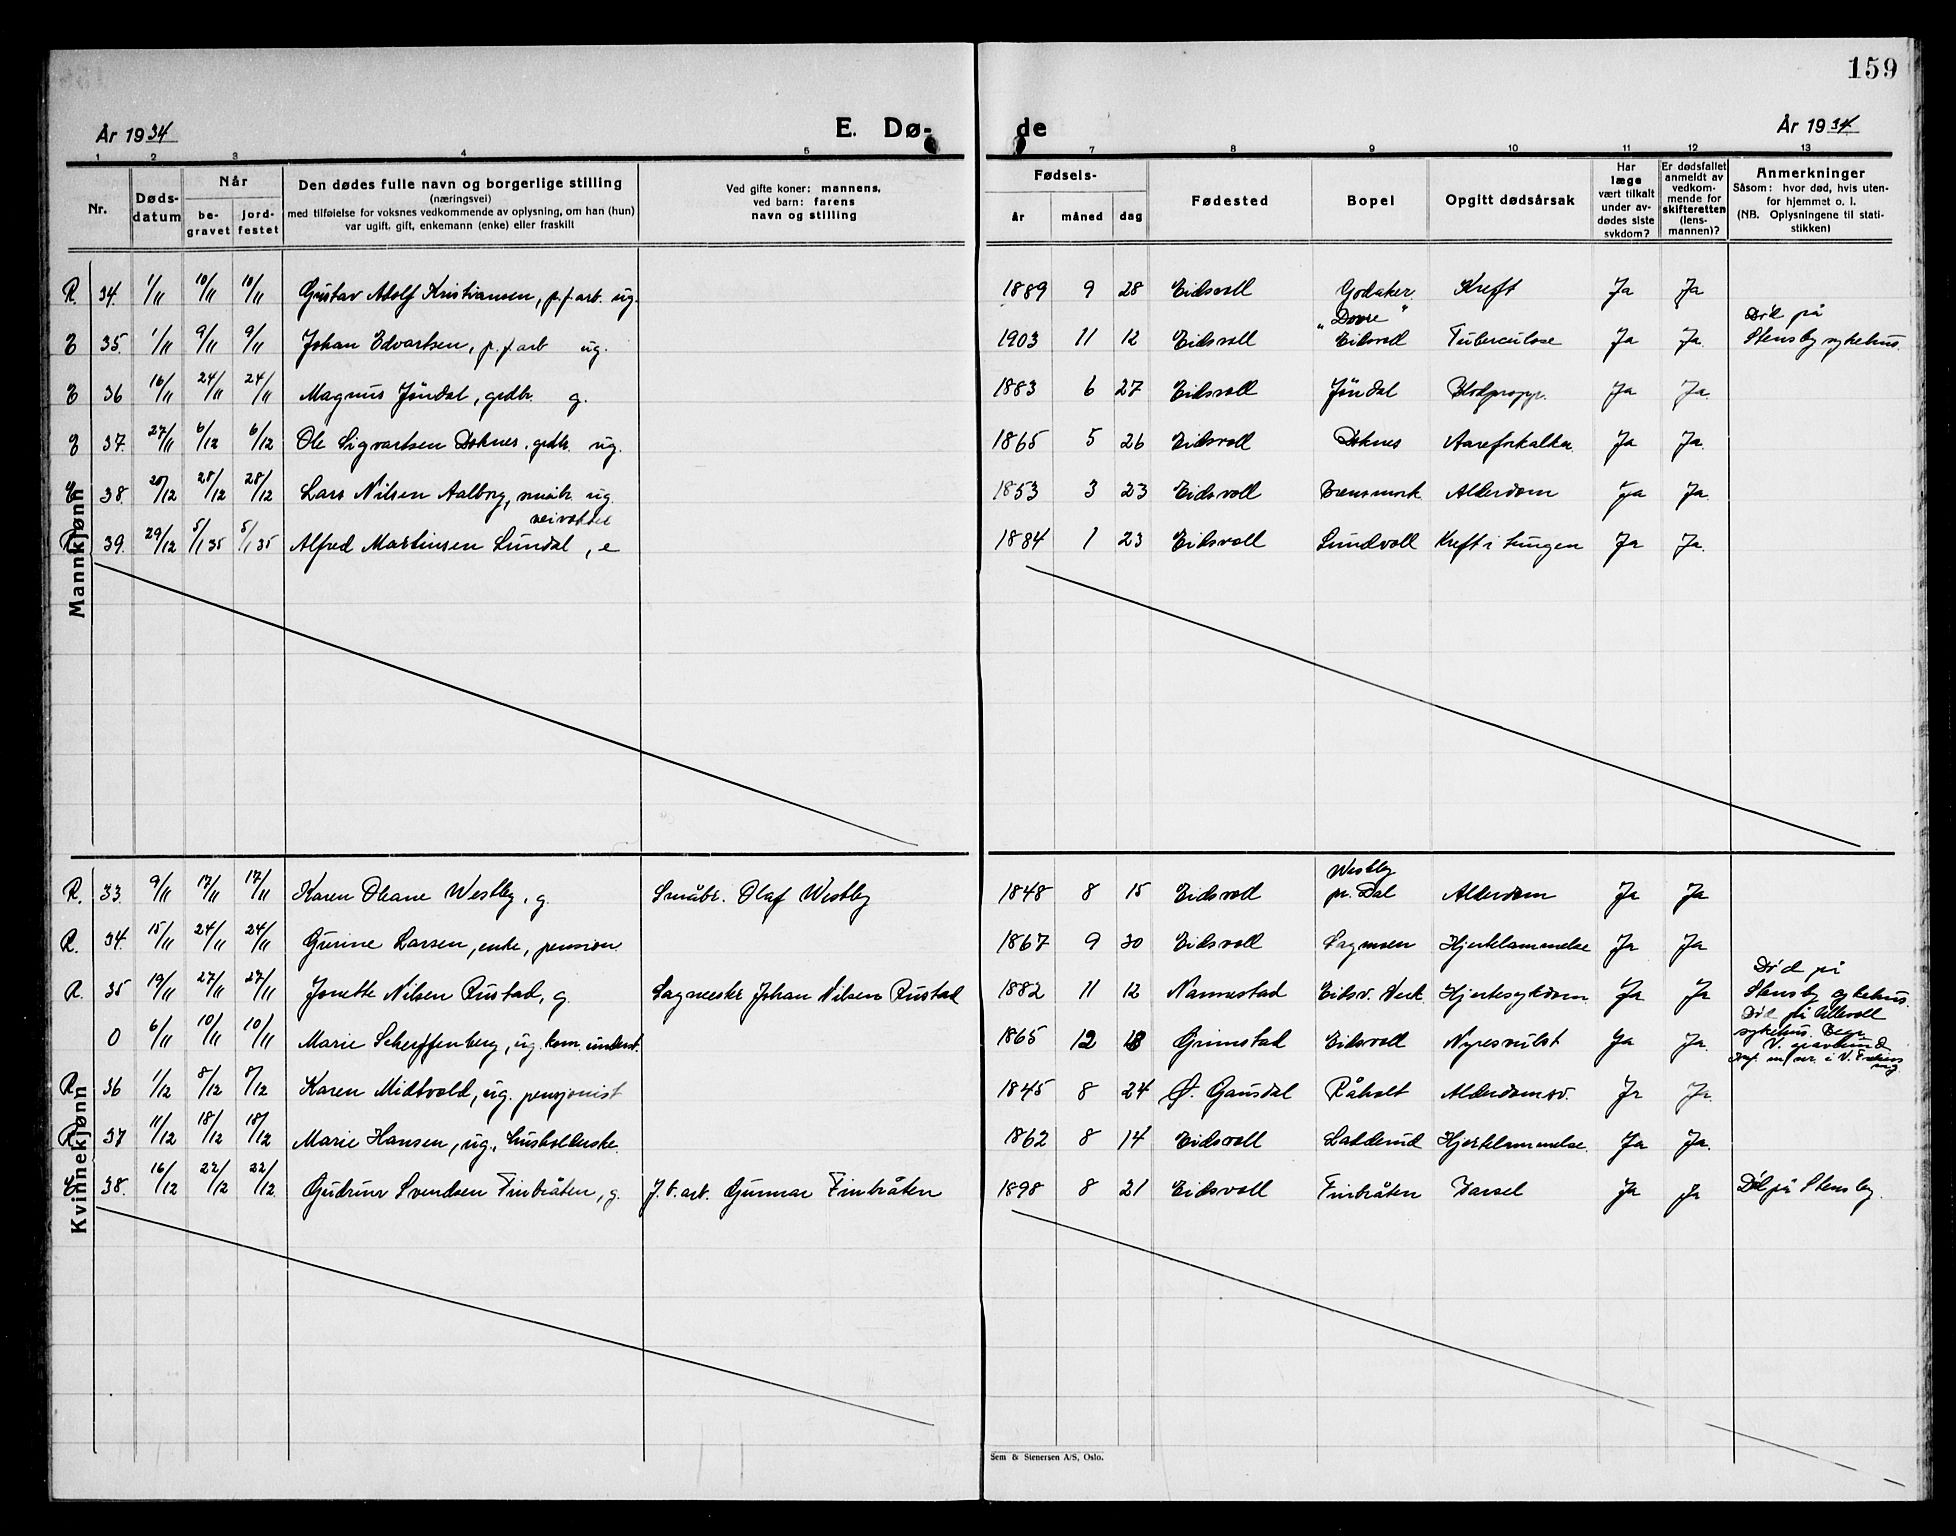 159
År 1934
E. Dø-
de
År 1934
1 2 3 4 5 7 8 9 10 11 12 13
Nr.
Døds-
datum
Når
be-
gravet
jord-
festet
Den dødes fulle navn og borgerlige stilling
(næringsvei)
med tilføielse for voksnes vedkommende av oplysning, om han (hun)
var ugift, gift, enkemann (enke) eller fraskilt
Ved gifte koner: mannens,
ved barn: farens
navn og stilling
Fødsels-
år måned dag
Fødested
Bopel
Opgitt dødsårsak
Har
læge
vært tilkalt
under av-
dødes siste
sykdom?
Er dødsfallet
anmeldt av
vedkom-
mende for
skifteretten
(lens-
mannen)?
Anmerkninger
Såsom: hvor død, hvis uten-
for hjemmet o. l.
(NB. Oplysningene til stati-
stikken)
Mannkjønn
R. 34. 1/11 10/11 10/11 Gustav Adolf Kristiansen, p.f. arb. ug. 1889 9 28 Eidsvoll Godaker Kreft Ja Ja
E 35. 1/11 9/11 9/11 Johan Edvartsen, p.f. arb ug. 1903 11 12 Eidsvoll "Dovre" Eidsvoll Tuberculose Ja Ja. Død på
Stensby sykehus.
E 36 16/11 24/11 24/11 Magnus Jøndal, grdbr. g. 1883 6 27 Eidsvoll Jøndal Blodpropp. Ja Ja.
E 37. 27/11 6/12 6/12 Ole Sigvartsen Doknes. grdbr. ug. 1865 5 26 Eidsvoll Doknes Aareforkalkn. Ja Ja.
E 38. 20/12 28/12 28/12 Lars Nilsen Aalborg, småbr. ug. 1853 3 23 Eidsvoll Alderdom Ja Ja.
veivokter
R 39. 29/12 5/1 35 5/1 35 Alfred Martinsen Lundal, e 1884 1 23 Eidsvoll Lundvoll Kreft i lungen Ja Ja.
Kvinnekjønn
Westby
R. 33. 9/11 17/11 17/11 Karen Oleane Westby, g. Småbr. Olaf Westby 1848 8 15 Eidsvoll pr. Dal Alderdom Ja Ja
R. 34. 15/11 24/11 24/11 Gurine Larsen, enke, pension. 1867 9 30 Eidsvoll Sagmoen Hjertelammelse Ja Ja
R. 35 19/11 27/11 27/11 Jonette Nilsen Rustad, g. Sagmester Johan Nilsen Rustad 1882 11 12 Nannestad Eidsv. Verk. Hjertesykdom Ja Ja Død på
Stensby sykehus.
0 6/11 10/11 10/11 Marie Scherffenberg, ug. kom. underst. 1865 12 Grimstad Eidsvoll Nyresvulst Ja Ja. Død på Ullevoll
sykehus. Begr.
V. gravlund
R. 36 1/12 8/12 8/12 Karen Midtvold, ug. pensjonist 1845 8 24 Ø. Gausdal Råholt Alderdomsv. Ja Ja.
R 37 11/12 18/12 18/12 Marie Hansen, ug., husholderske. 1862 8 14 Eidsvoll Ladderud Hjertelammelse. Ja Ja.
E 38. 16/12 22/12 22/12 Gudrun Svendsen Finbråten, g. J.b. arb. Gunnar Finbråten 1898 8 21 Eidsvoll Finbråten Barsel Ja Ja Død på Stensby.
Sem & Stenersen A/S, Oslo.